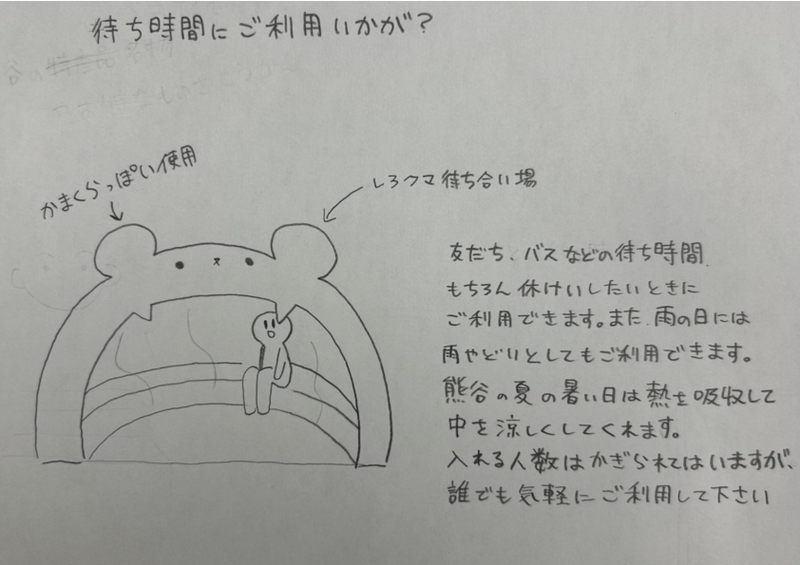 待ち時間にご利用いかが?
かまくらっぽい使用
しろクマ待ち合い場
友だち、バスなどの待ち時間
もちろん休けいしたいときに
ご利用できます。また、雨の日には
雨やどりとしてもご利用できます。
熊谷の夏の暑い日は熱を吸収して
中を涼しくしてくれます。
入れる人数はかぎられてはいますが、
誰でも気軽にご利用して下さい